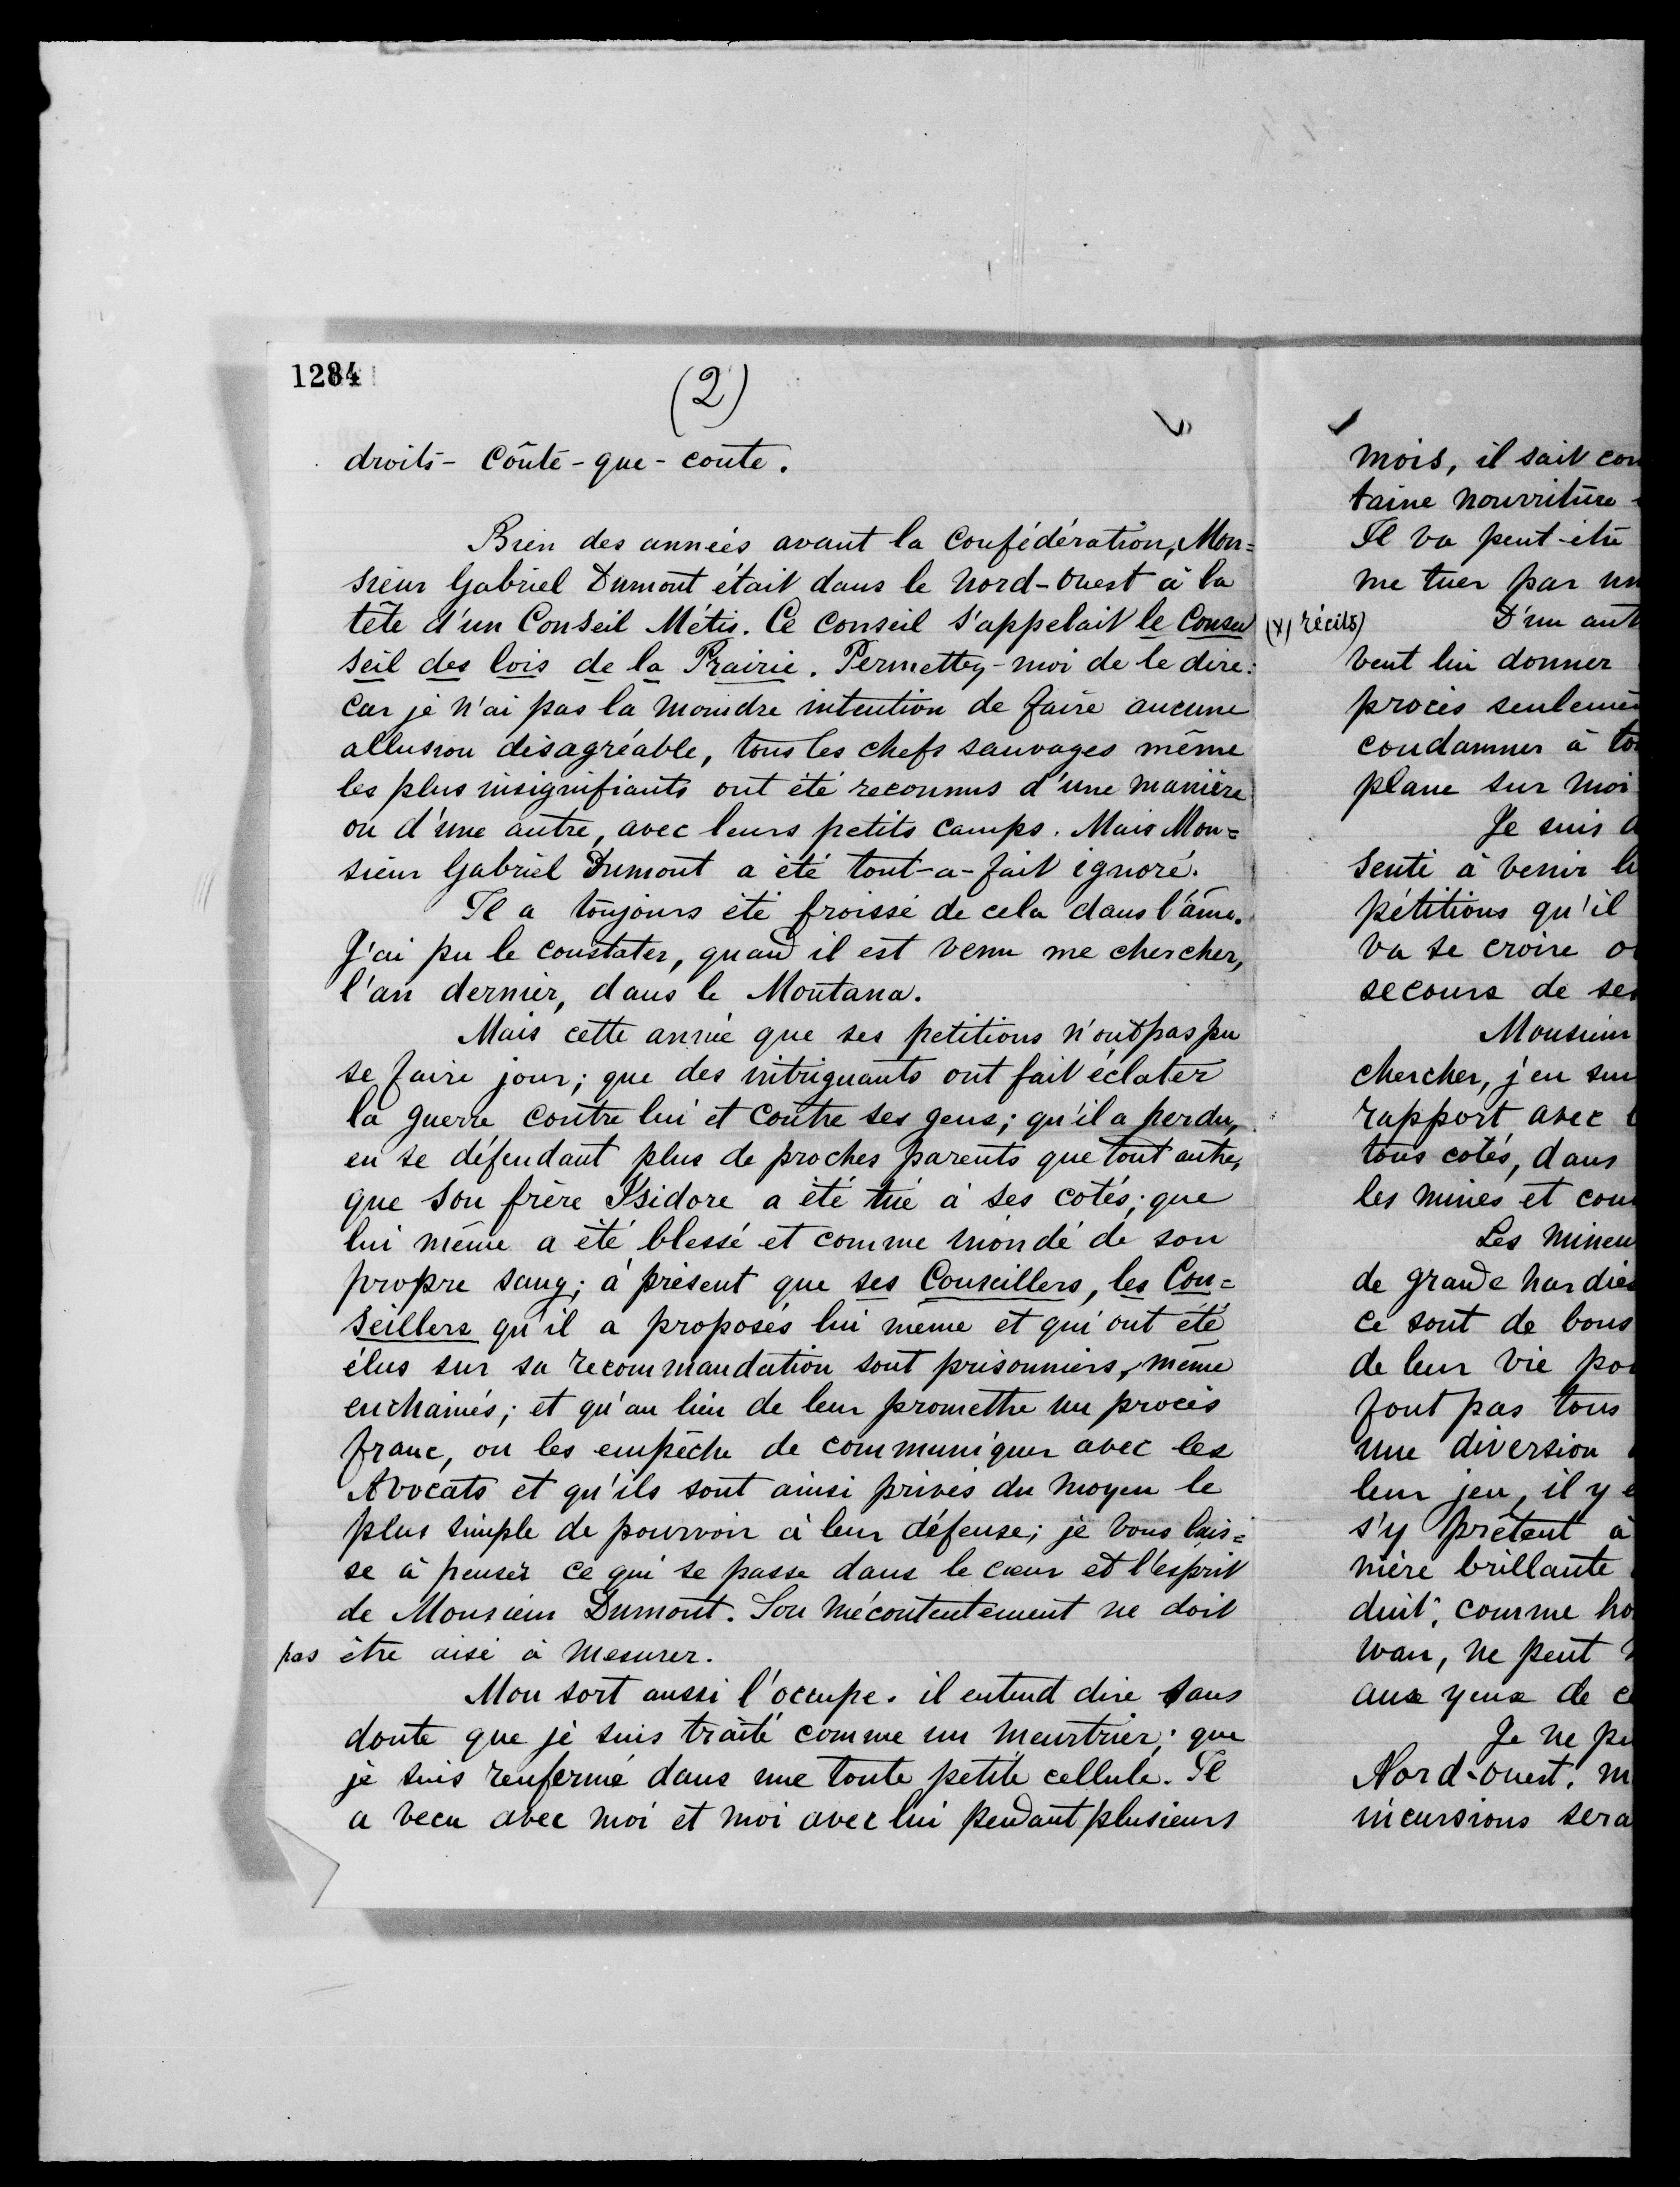 1284
(2)
droits - Coûte-que-coute.
Bien des années avant la Confédération, Mon=
sieur Gabriel Dumont était dans le Nord-Ouest à la
tête d'un Conseil Métis. Ce Conseil s'appelait le Conseil
seil des lois de la Prairie. Permettez-moi de le dire:
Car je n'ai pas la moindre intention de faire aucune
allusion désagréable, tous les chefs sauvages même
les plus insignifiants ont été reconnus d'une manière
ou d'une autre, avec leurs petits camps. Mais Mon=
sieur Gabriel Dumont a été tout-a-fait ignoré.
Il a toujours été froissé de cela dans l'âme.
J'ai pu le constater, quand il est venu me chercher,
l'an dernier, dans le Montana.
Mais cette année que ses petitions n'ont pas pu
se faire jour; que des intriguants ont fait éclater
la guerre contre lui et contre ses gens; qu'il a perdu,
en se défendant plus de proches parents que tout autre,
que son frère Isidore a été tué à ses cotés; que
lui même a été blessé et comme inondé de son
propre sang; à présent que ses Conseillers, les Con=
seillers qu'il a proposés lui même et qui ont été
élus sur sa recommandation sont prisonniers, même
enchainés; et qu'au lieu de leur promettre un procès
franc, on les empêche de communiquer avec les
Avocats et qu'ils sont ainsi privés du moyen le
plus simple de pourvoir à leur défense; je vous lais=
se à penser ce qui se passe dans le cœur et l'esprit
de Monsieur Dumont. Son mécontentement ne doit
pas être aisé à mesurer.
Mon sort aussi l'occupe. il entend dire sans
doute que je suis traité comme un meurtrier; que
je suis renfermé dans une toute petite cellule. Il
a vecu avec moi et moi avec lui pendant plusieurs
mois, il sait
taine nourriture
Il va peut-être
me tuer par un
(x) récits)
D'un
veut lui donner
procès
condamner à
plane sur moi
Je suis
senti à venir
pétitions qu'il
va se croire
secours de
Monsieur
chercher, j'en
rapport avec
tous cotés, dans
les mines et
Les
de grande
ce sont de bons
de leur vie
font pas tous
une diversion
leur jeu, il y
s'y prêtent à
nière brillante
duit, comme
wan, ne peut
aux yeux de
Je ne
Nord-Ouest.
incursions